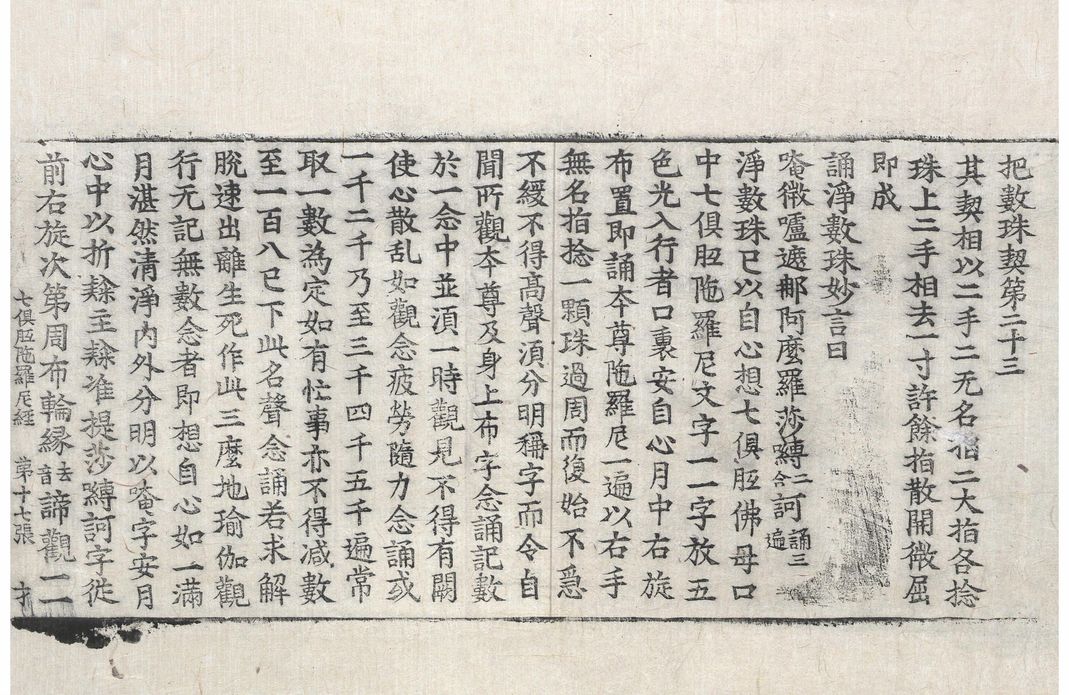 把數珠契第二十三
其契相以二手二无名指二大指各捻
珠上二手相去一寸許餘指散開微屈
即成
誦淨數珠妙言曰
唵微嚧遮那阿麽羅莎縛二合訶誦三遍
淨數珠已以自心想七俱胝佛母口
中七俱胝陁羅尼文字一一字放五
色光入行者口裏安自心月中右旋
布置即誦夲尊陁羅尼一遍以右手
無名指捻一顆珠過周而復始不急
不緩不得髙聲湏分明稱字而令自
聞所觀夲尊及身上布字念誦記數
於一念中並湏一時觀見不得有闕
使心散乱如觀念疲勞隨力念誦或
一千二千乃至三千四千五千遍常
取一數為定如有忙事亦不得減數
至一百八已下此名聲念誦若求解
脫速出離生死作此三麽地瑜伽觀
行无記無數念者即想自心如一滿
月湛然清淨內外分明以唵字安月
心中以折隷主隷准提莎縛訶字從
前右旋次第周布輪縁去音諦觀一一
七俱胝陁羅尼經 第十七張 才